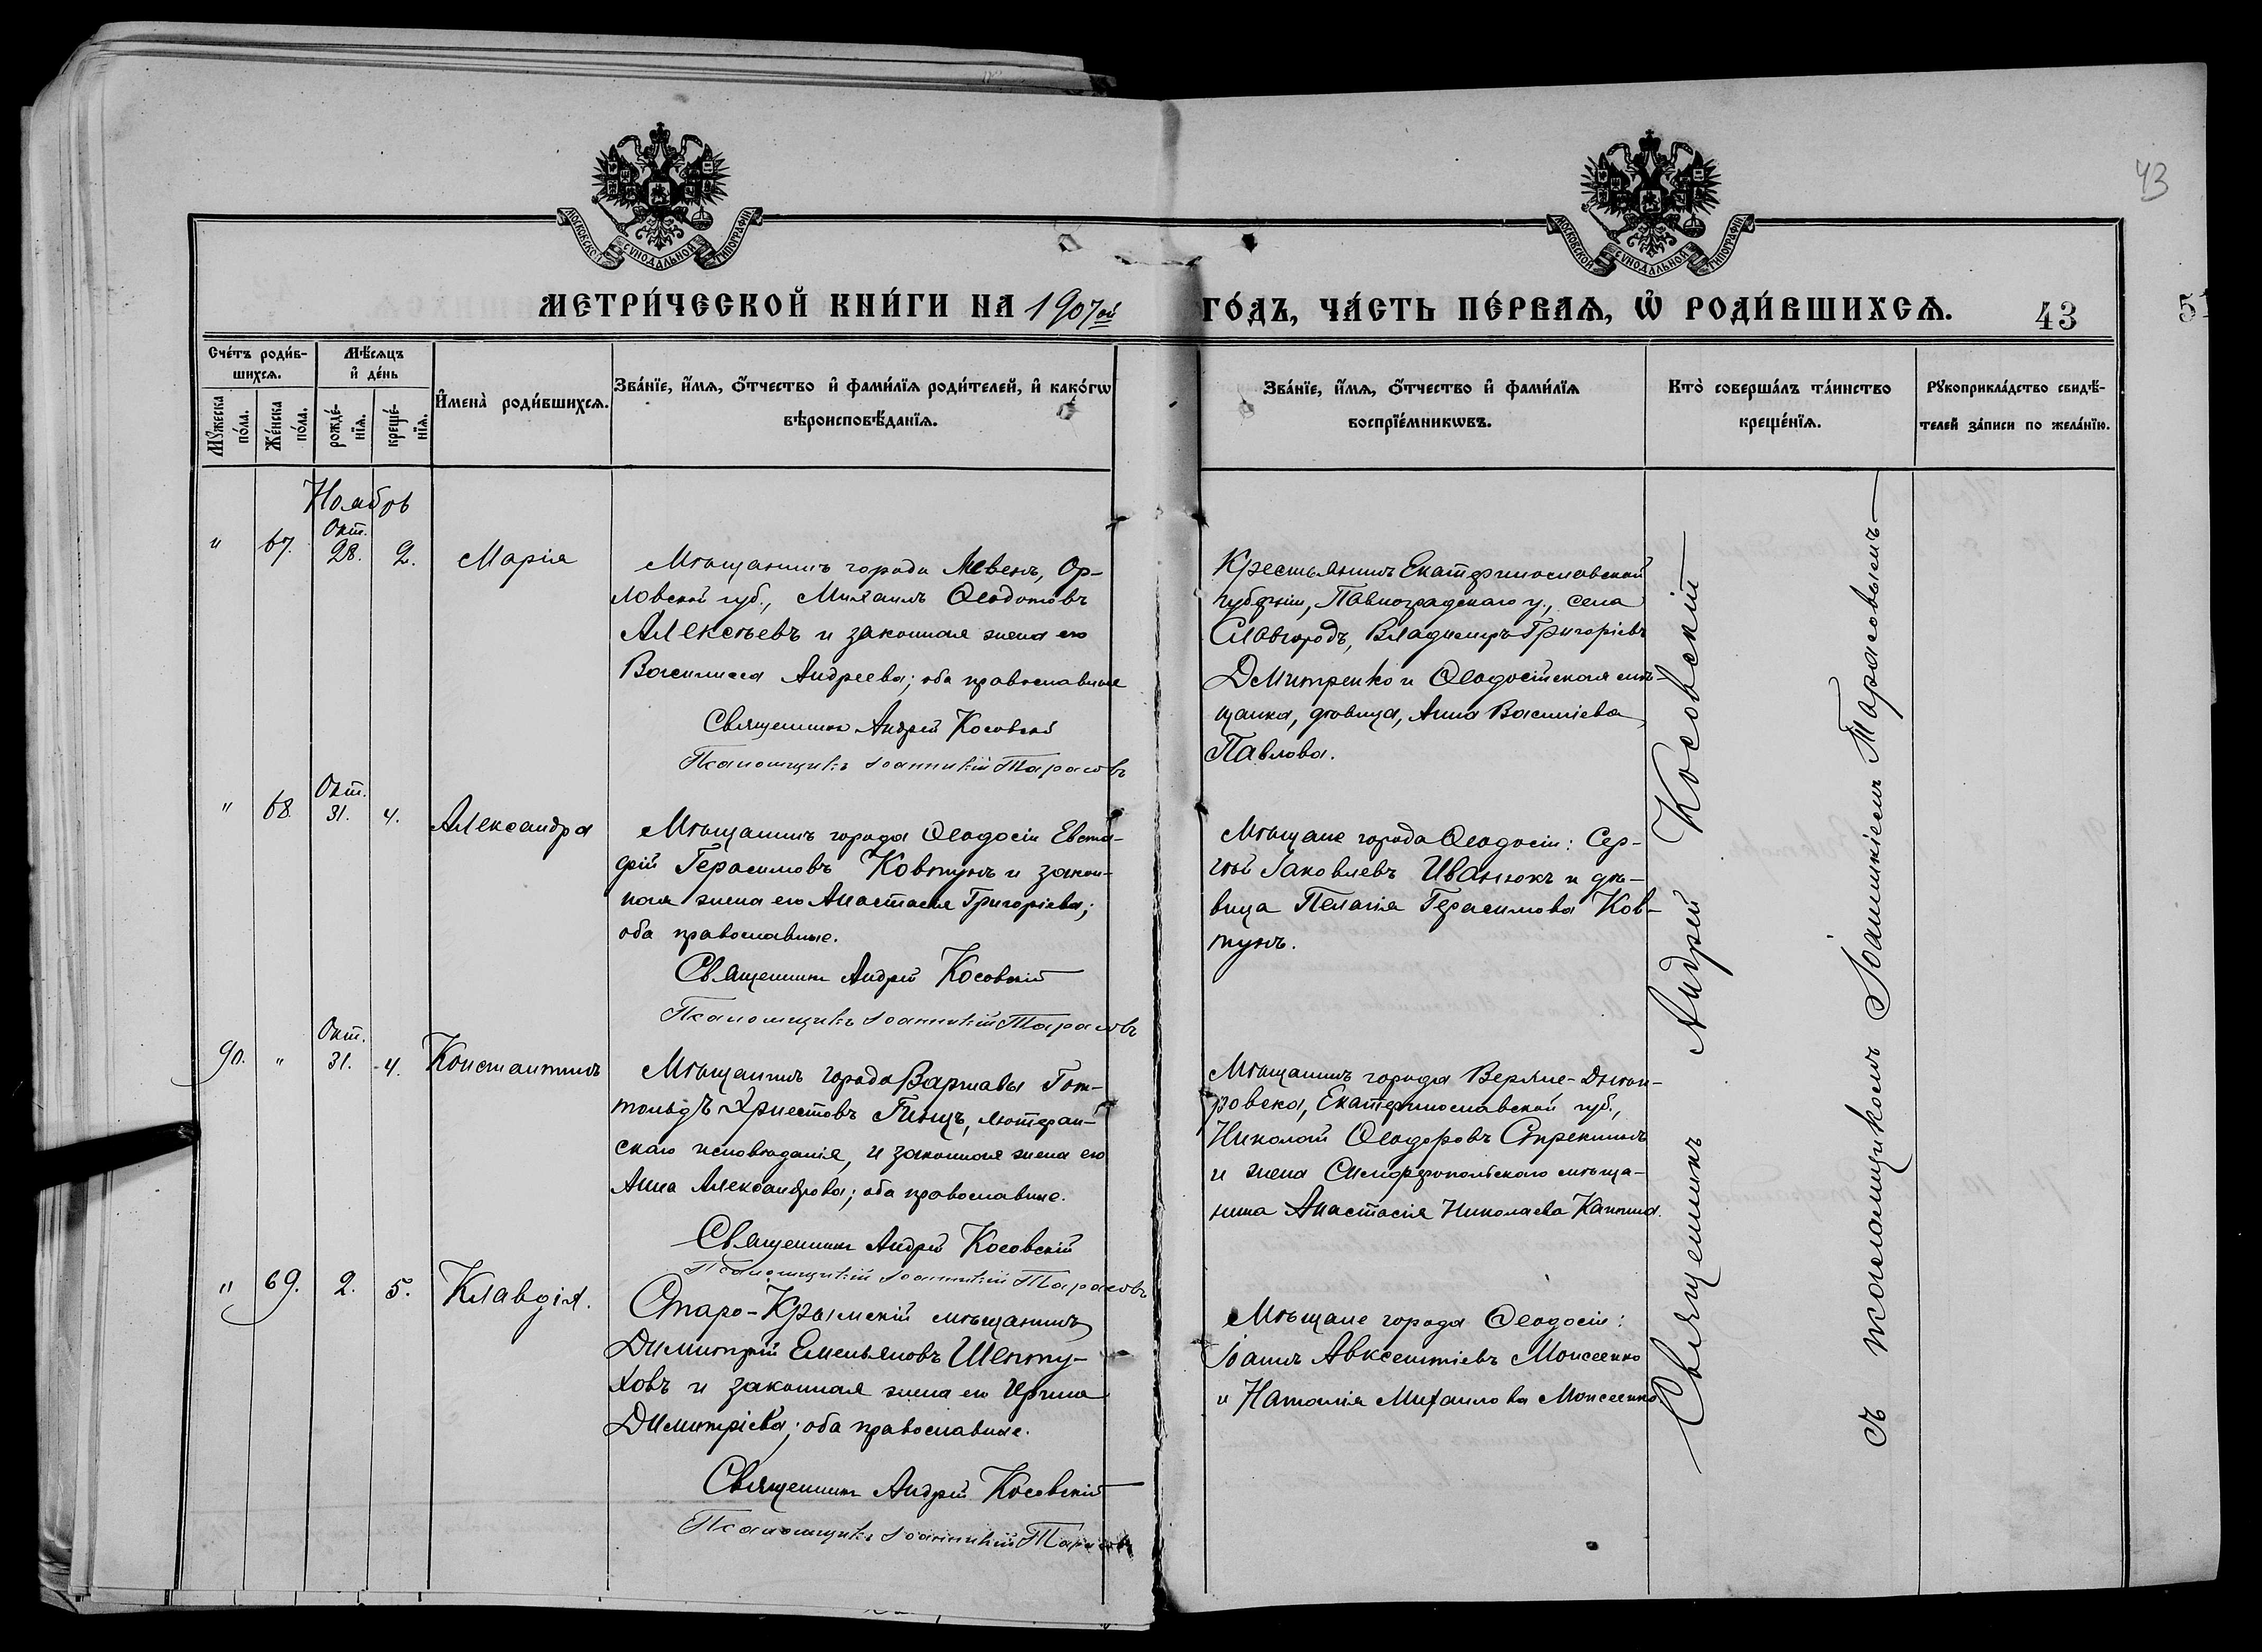 43
МОСКОВСКОЙ СѴНОДАЛЬНОЙ ТИПОГРАФІИ
МОСКОВСКОЙ СѴНОДАЛЬНОЙ ТИПОГРАФІИ
МЕТРИ́ЧЕСКОЙ КНИ́ГИ НА 1907ой ГО́ДЪ, ЧА́СТЬ ПЕ́РВАѦ, Ѡ҆ РОДИ́ВШИХСѦ.
43
Сче́тъ роди́в-
шихсѧ.
Мѣ́сяцъ
и҆ де́нь
Мꙋ́жеска
по́ла.
Же́нска
по́ла.
рожде́-
нїѧ.
креще́-
нїѧ.
И҆мена̀ роди́вшихсѧ.
Зва́нїе, и҆́мѧ, ѻ҆́тчество и҆ фами́лїѧ роди́телей, и҆ како́гѡ
вѣроисповѣ́данїѧ.
Зва́нїе, и҆́мѧ, ѻ҆́тчество и҆ фами́лїѧ
воспрїе́мникѡвъ.
Кто̀ соверша́лъ та́инство
креще́нїѧ.
Рꙋкоприкла́дство свидѣ́-
телей за́писи по жела́нїю.
Ноябрь
" 67. Окт. 28. 2. Марія
Мѣщанинъ города Ливенъ, Ор-
ловской губ., Михаилъ Ѳеодотовъ
Алексѣевъ и законная жена его
Василисса Андреева; оба православные
Священникъ Андрей Косовскій
Псаломщикъ Іоанникій Тарасовъ
Крестьянинъ Екатеринославской
губерніи, Павлоградскаго у., села
Славгородъ, Владиміръ Григоріевъ
Дмитренко и Ѳеодосійская мѣ-
щанка, дѣвица, Анна Василіева
Павлова.
" 68 Окт. 31. 4. Александра
Мѣщанинъ города Ѳеодосіи Евста-
фій Герасимовъ Ковтунъ и закон-
ная жена его Анастасія Григоріева;
оба православные.
Священникъ Андрей Косовскій
Псаломщикъ Іоанникій Тарасовъ
Мѣщане города Ѳеодосіи: Сер-
гѣй Іаковлевъ Иванюкъ и дѣ-
вица Пелагія Герасимова Ков-
тунъ.
90. " Окт. 31. 4. Константинъ
Мѣщанинъ города Варшавы Гот-
тольдъ Гинцъ, лютеран-
скаго исповѣданія, и законная жена его
Анна Александрова; оба православные.
Священникъ Андрей Косовскій
Псаломщикій Іоанникій Тарасовъ
Мѣщанинъ города Верхне-Днѣп-
ровска, Екатеринославской губ.,
Николай Ѳеодоровъ
и жена Симферопольскаго мѣща-
нина Анастасія Николаева
" 69. 2. 5. Клавдія.
Старо-Крымскій мѣщанинъ
Димитрій Емельяновъ Шепту-
ховъ и законная жена его Ирина
Димитріева; оба православные.
Священникъ Андрей Косовскій
Псаломщикъ Іоанникій Тарасовъ
Мѣщане города Ѳеодосіи:
Іоаннъ Авксентіевъ Моисеенко
и Наталія Михаилова Моисеенко.
Священникъ Андрей Косовскій
съ псаломщикомъ Іоанникіемъ Тарасовымъ